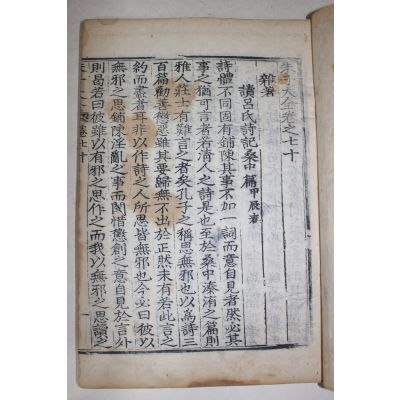 朱子大全卷之七十
雜著
讀呂氏詩記桑中篇甲辰春
詩體不同固有鋪陳其事不加一詞而意自見者然必其
事之猶可言者若淸人之詩是也至於桑中溱洧之篇則
雅人莊士有難言之者矣孔子之稱思無邪也以爲詩三
百篇勸善懲惡雖其要歸無不出於正然未有若此言之
約而盡者耳非以作詩之人所思皆無邪也今必曰彼以
無邪之思鋪陳淫亂之事而閔惜懲創之意自見於言外
則曷若曰彼雖以有邪之思作之而我以無邪之思讀之